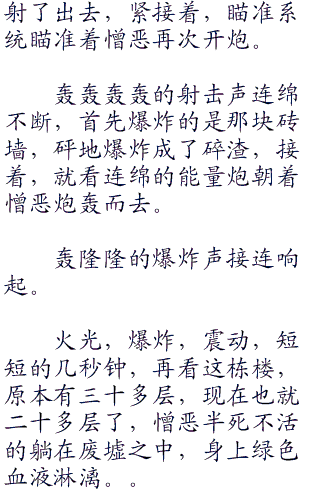 射了出去，紧接着，瞄准系
统瞄准着憎恶再次开炮。
轰轰轰轰的射击声连绵
不断，首先爆炸的是那块砖
墙，砰地爆炸成了碎渣，接
着，就看连绵的能量炮朝着
憎恶炮轰而去。
轰隆隆的爆炸声接连响
起。
火光，爆炸，震动，短
短的几秒钟，再看这栋楼，
原本有三十多层，现在也就
二十多层了，憎恶半死不活
的躺在废墟之中，身上绿色
血液淋漓。。